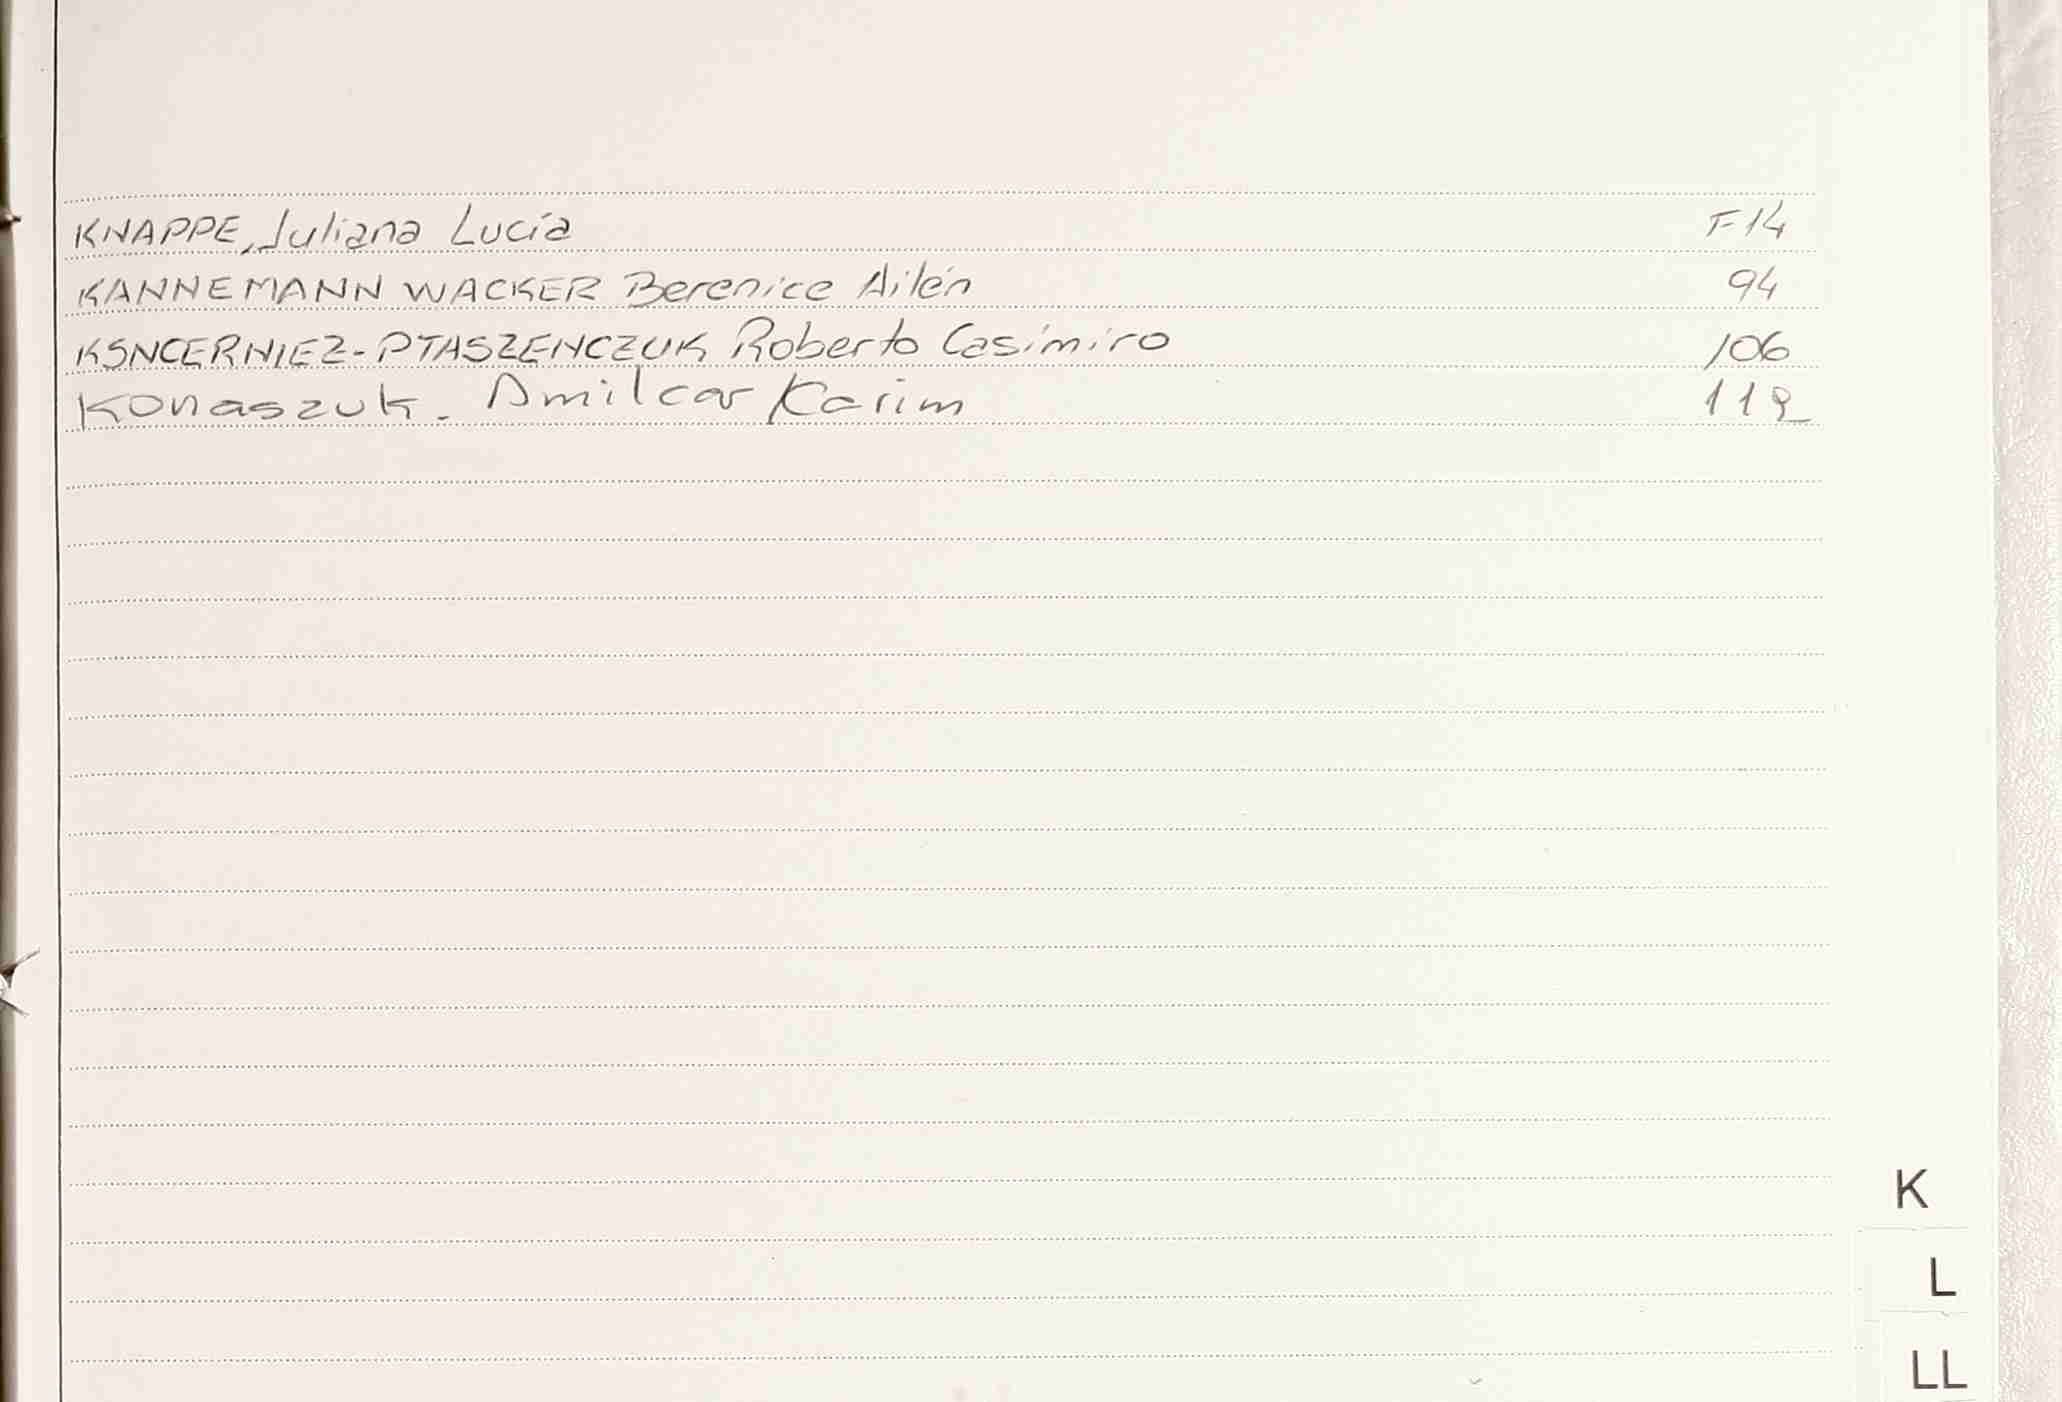 KNAPPE, Juliana Lucía F 14
KANNEMANN WACKER Berenice Ailén 94
KSNCERNIEZ-PTASZENCZUK Roberto Casimiro 106
Konaszuk. Amilcar Karim 112
K
L
LL